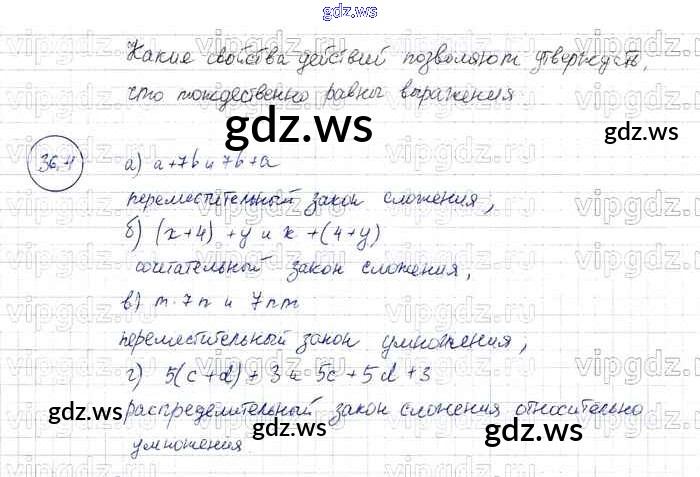 gdz.ws
Какие свойства действий позволяют утверждать,
что тождественно равны выражения
gdz.ws
36.4
а) a+7b и 7b+a
переместительный закон сложения;
б) (x+4)+y и x+(4+y)
сочетательный закон сложения,
в) m·7n и 7nm
переместительный закон умножения,
г) 5(c+d)+3 и 5c+5d+3
распределительный закон сложения относительно
умножения
gdz.ws
gdz.ws
gdz.ws
vipgdz.ru